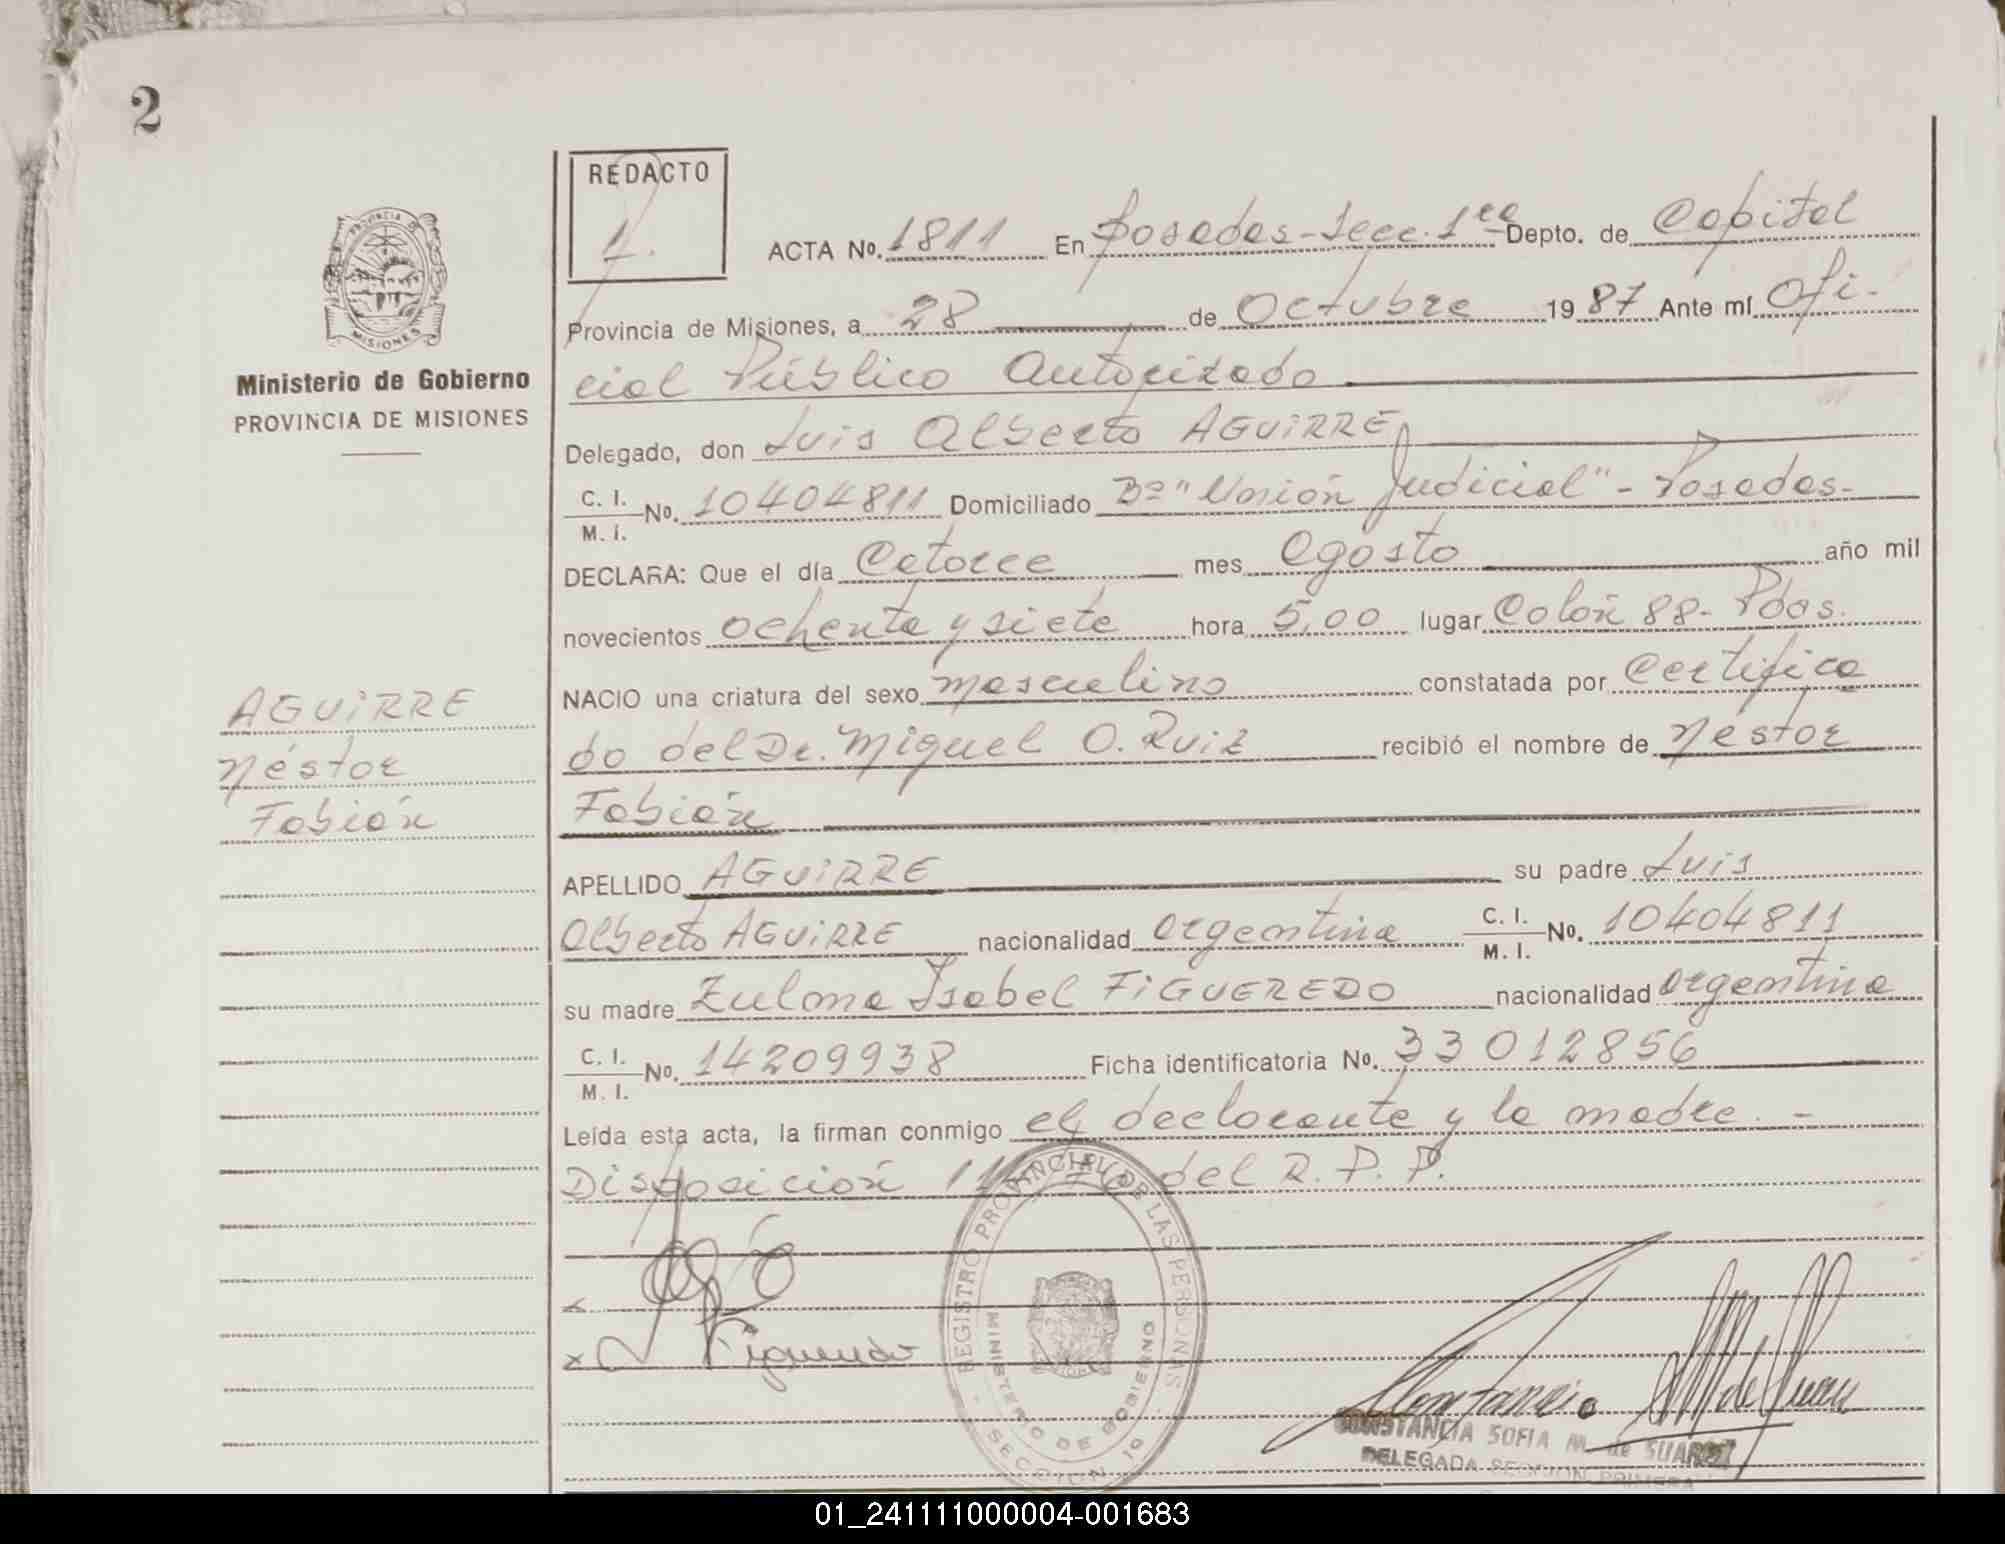 2
REDACTO
1.
ACTA No. 1811 En Posadas-Secc. 1ra Depto. de Capital
Provincia de Misiones, a 28 de Octubre 1987 Ante mí Ofi-
cial Público Autorizado
PROVINCIA DE
MISIONES
Ministerio de Gobierno
PROVINCIA DE MISIONES
Delegado, don Luis Alberto AGUIRRE
C. I.
M. I. No. 10404811 Domiciliado Bº "Unión Judicial" - Posadas-
DECLARA: Que el día Catorce mes Agosto año mil
novecientos ochenta y siete hora 5,00 lugar Colón 88- Pdas.
NACIO una criatura del sexo masculino constatada por Certifica
do del Dr. Miguel O. Ruiz recibió el nombre de Néstor
Fabián
AGUIRRE
Néstor
Fabián
APELLIDO AGUIRRE su padre Luis
Alberto AGUIRRE nacionalidad argentina C. I.
M. I. No. 10404811
su madre Zulma Isabel FIGUEREDO nacionalidad argentina
C. I.
M. I. No. 14209938 Ficha identificatoria No. 33 012856
Leída esta acta, la firman conmigo el declarante y la madre. -
Disposición del R. P. P.
REGISTRO PROVINCIAL DE LAS PERSONAS
MINISTERIO DE GOBIERNO
SECCION
x
x Figueredo
CONSTANCIA SOFIA M. de SUAREZ
DELEGADA SECCION PRIMERA
01_241111000004-001683